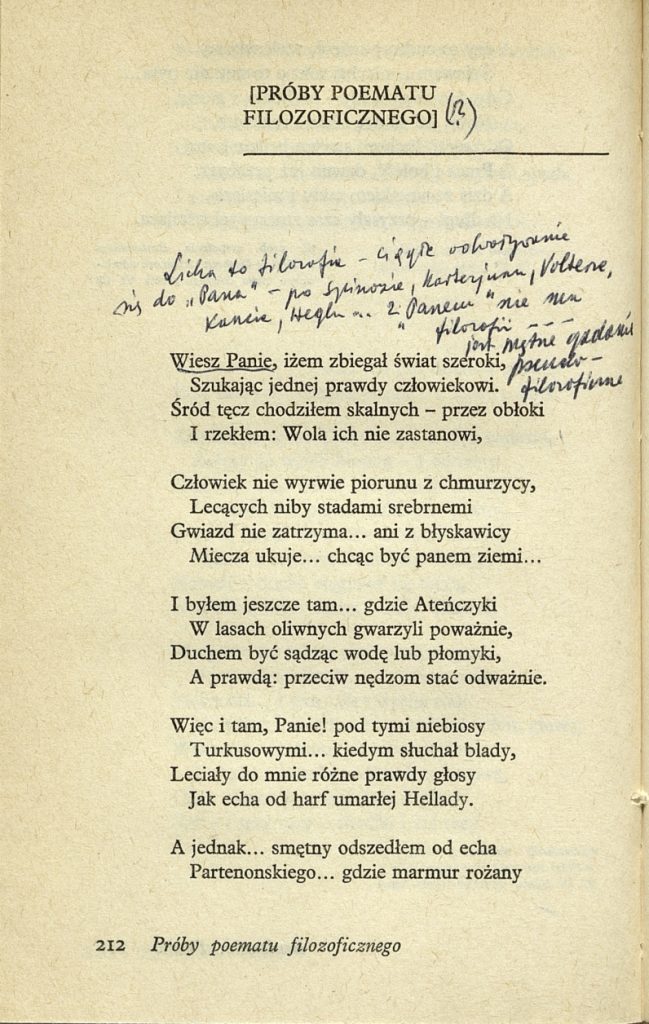 [PRÓBY POEMATU
FILOZOFICZNEGO] (?)
Licha to filozofia – ciągłe odwoływanie
się do „Pana” – po Spinozie, Kartezjuszu, Volterze,
Kancie, Heglu... Z „Panem” nie ma
filozofii – – –
jest mętne gadanie
pseudo-
filozoficzne
Wiesz Panie, iżem zbiegał świat szeroki,
Szukając jednej prawdy człowiekowi.
Śród tęcz chodziłem skalnych – przez obłoki
I rzekłem: Wola ich nie zastanowi,
Człowiek nie wyrwie piorunu z chmurzycy,
Lecących niby stadami srebrnemi
Gwiazd nie zatrzyma... ani z błyskawicy
Miecza ukuje... chcąc być panem ziemi...
I byłem jeszcze tam... gdzie Ateńczyki
W lasach oliwnych gwarzyli poważnie,
Duchem być sądząc wodę lub płomyki,
A prawdą: przeciw nędzom stać odważnie.
Więc i tam, Panie! pod tymi niebiosy
Turkusowymi... kiedym słuchał blady,
Leciały do mnie różne prawdy głosy
Jak echa od harf umarłej Hellady.
A jednak... smętny odszedłem od echa
Partenonskiego... gdzie marmur rożany
212 Próby poematu filozoficznego